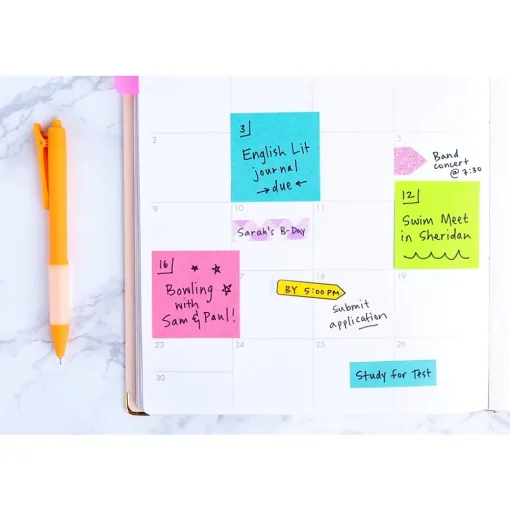 2
3
English Lit
journal
→due←
5
Band
concert
@ 7:30
9
10
Sarah's B-Day
11
12
Swim Meet
in Sheridan
16
Bowling
with
Sam & Paul!
BY 5:00 PM
18
Submit
application
19
23
24
25
26
Study for Test
30